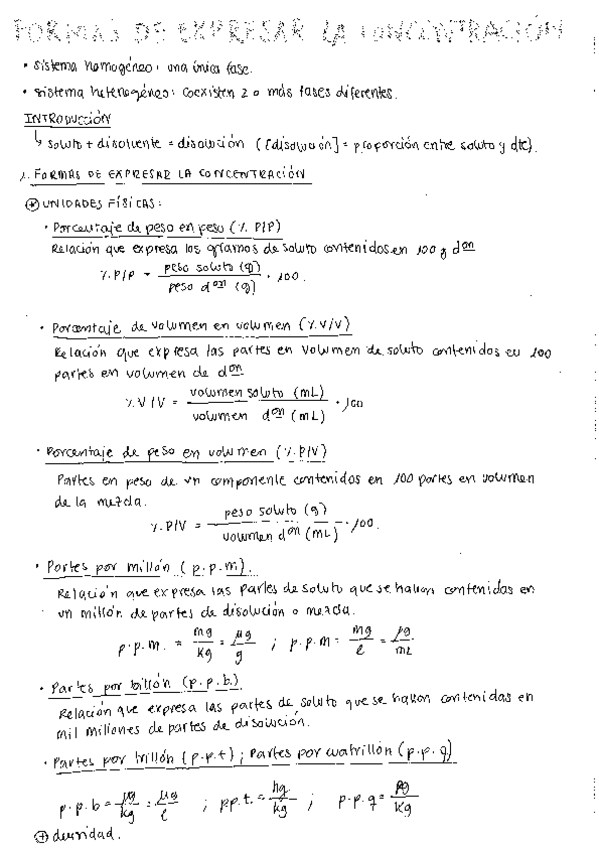 FORMAS DE EXPRESAR LA CONCENTRACIÓN
• sistema homogéneo: una única fase.
• sistema heterogéneo: coexisten 2 o más fases diferentes.
INTRODUCCIÓN
↳ soluto + disolvente = disolución ([disolución] = proporción entre soluto y dte).
1. FORMAS DE EXPRESAR LA CONCENTRACIÓN
⊛ UNIDADES FÍSICAS:
• Porcentaje de peso en peso (% P/P)
Relación que expresa los gramos de soluto contenidos en 100 g don
% P/P = peso soluto (g) / peso don (g) · 100.
• Porcentaje de volumen en volumen (% V/V)
Relación que expresa las partes en volumen de soluto contenidos en 100
partes en volumen de don
% V/V = volumen soluto (mL) / volumen don (mL) · 100
• Porcentaje de peso en volumen (% P/V)
Partes en peso de un componente contenidos en 100 partes en volumen
de la mezcla.
% P/V = peso soluto (g) / volumen don (mL) · 100.
• Partes por millón (p.p.m).
Relación que expresa las partes de soluto que se hallan contenidas en
un millón de partes de disolución o mezcla.
p.p.m. = mg/kg = μg/g ; p.p.m = mg/l = μg/mL
• Partes por billón (p.p.b.)
Relación que expresa las partes de soluto que se hallan contenidas en
mil millones de partes de disolución.
• Partes por trillón (p.p.t) ; Partes por cuatrillón (p.p.q)
p.p.b = μg/kg = μg/l ; p.p.t. = ng/kg ; p.p.q = pg/kg
⊛ densidad.